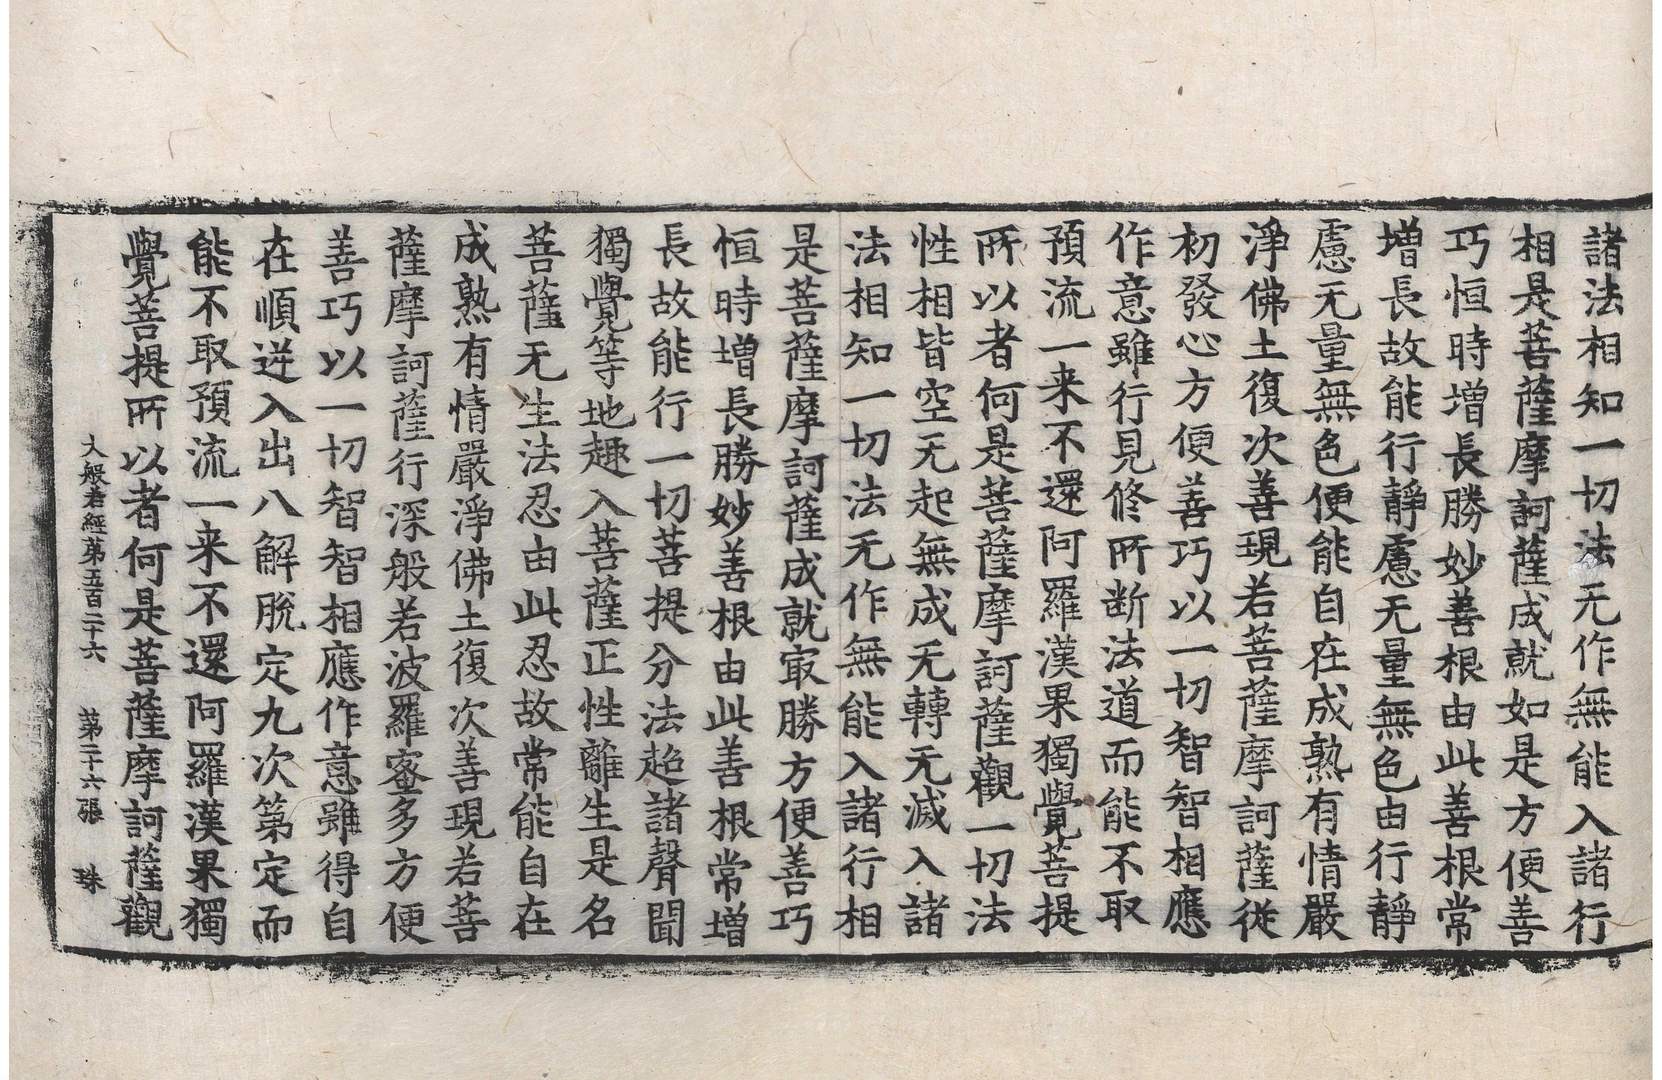 諸法相知一切法无作無能入諸行
相是菩薩摩訶薩成就如是方便善
巧恒時增長勝妙善根由此善根常
增長故能行靜慮无量無色由行靜
慮无量無色便能自在成熟有情嚴
淨佛土復次善現若菩薩摩訶薩從
初發心方便善巧以一切智智相應
作意雖行見修所断法道而能不取
預流一来不還阿羅漢果獨覺菩提
所以者何是菩薩摩訶薩觀一切法
性相皆空无起無成无轉无滅入諸
法相知一切法无作無能入諸行相
是菩薩摩訶薩成就㝡勝方便善巧
恒時增長勝妙善根由此善根常增
長故能行一切菩提分法超諸聲聞
獨覺等地趣入菩薩正性離生是名
菩薩无生法忍由此忍故常能自在
成熟有情嚴淨佛土復次善現若菩
薩摩訶薩行深般若波羅蜜多方便
善巧以一切智智相應作意雖得自
在順逆入出八解脫定九次第定而
能不取預流一来不還阿羅漢果獨
覺菩提所以者何是菩薩摩訶薩觀
大般若經第五百二十六 第二十六張 珠